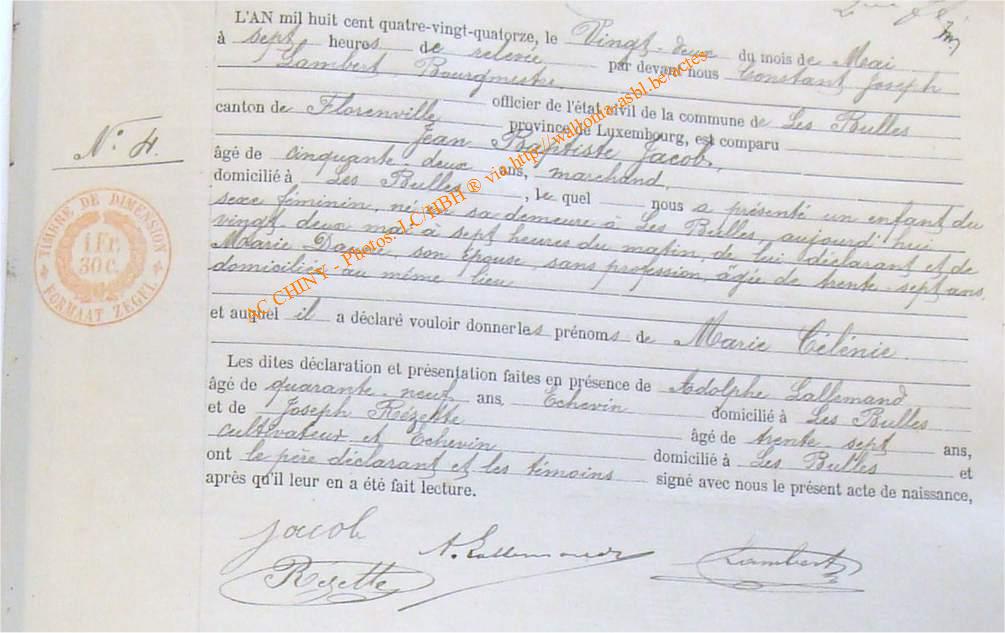 L'AN mil huit cent quatre-vingt-quatorze, le Vingt-deux du mois de Mai
à sept heures de relevée, par devant nous Constant Joseph
Lambert, Bourgmestre,
officier de l'état civil de la commune de Les Bulles
canton de Florenville province de Luxembourg, est comparu
Jean Baptiste Jacob,
âgé de cinquante-deux ans, marchand,
domicilié à Les Bulles, le quel nous a présenté un enfant du
sexe féminin, né en sa demeure à Les Bulles aujourd'hui
vingt-deux mai à sept heures du matin, de lui déclarant et de
Marie son épouse sans profession, âgée de trente-sept ans,
domiciliée au même lieu
et auquel il a déclaré vouloir donner les prénoms de Marie Célénie.
Les dites déclaration et présentation faites en présence de Adolphe Lallemand
âgé de quarante neuf ans, Echevin domicilié à Les Bulles
et de Joseph Rézette âgé de trente sept ans,
cultivateur et Echevin domicilié à Les Bulles et
ont le père déclarant et les témoins signé avec nous le présent acte de naissance,
après qu'il leur en a été fait lecture.
N° 4.
TIMBRE DE DIMENSION
1 Fr.
30 C.
FORMAAT ZEGEL
AC CHINY - Photos: LC/HBH ® via http://wallonia-asbl.be/actes
Jacob
A. Lallemand
Lambert
Rézette